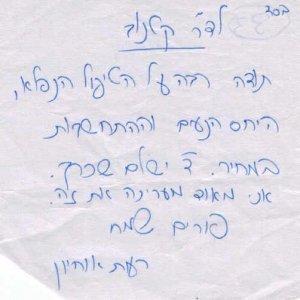 בס"ד
לד"ר קטנוב
תודה רבה על הטיפול הנפלא,
היחס הנעים וההתחשבות
במחיר. ד' ישלם שכרך.
אני מאוד מעריכה את זה.
פורים שמח
רעות אוחיון